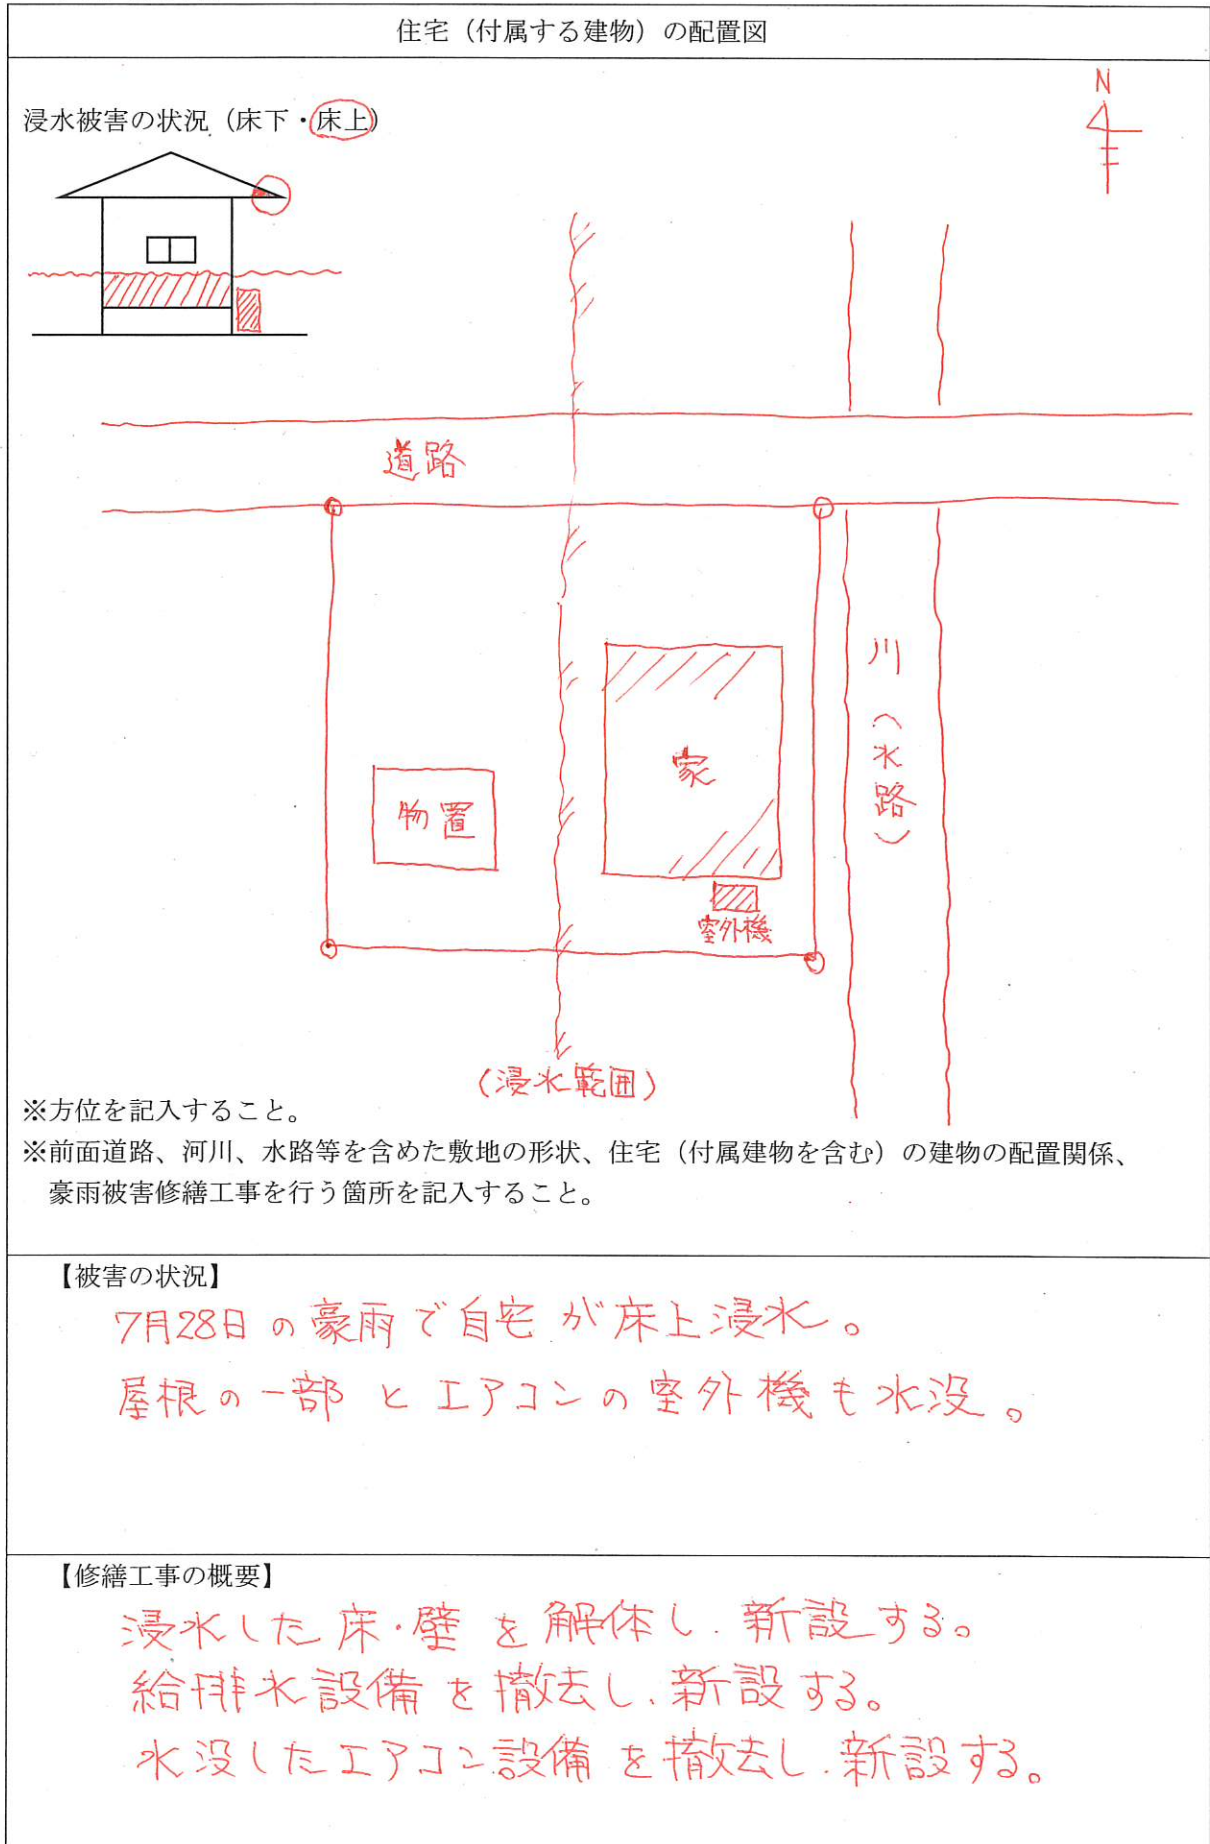 住宅（付属する建物）の配置図
N
浸水被害の状況（床下・床上）
道路
川（水路）
家
物置
室外機
（浸水範囲）
※方位を記入すること。
※前面道路、河川、水路等を含めた敷地の形状、住宅（付属建物を含む）の建物の配置関係、
豪雨被害修繕工事を行う箇所を記入すること。
【被害の状況】
7月28日の豪雨で自宅が床上浸水。
屋根の一部とエアコンの室外機も水没。
【修繕工事の概要】
浸水した床・壁を解体し、新設する。
給排水設備を撤去し、新設する。
水没したエアコン設備を撤去し、新設する。